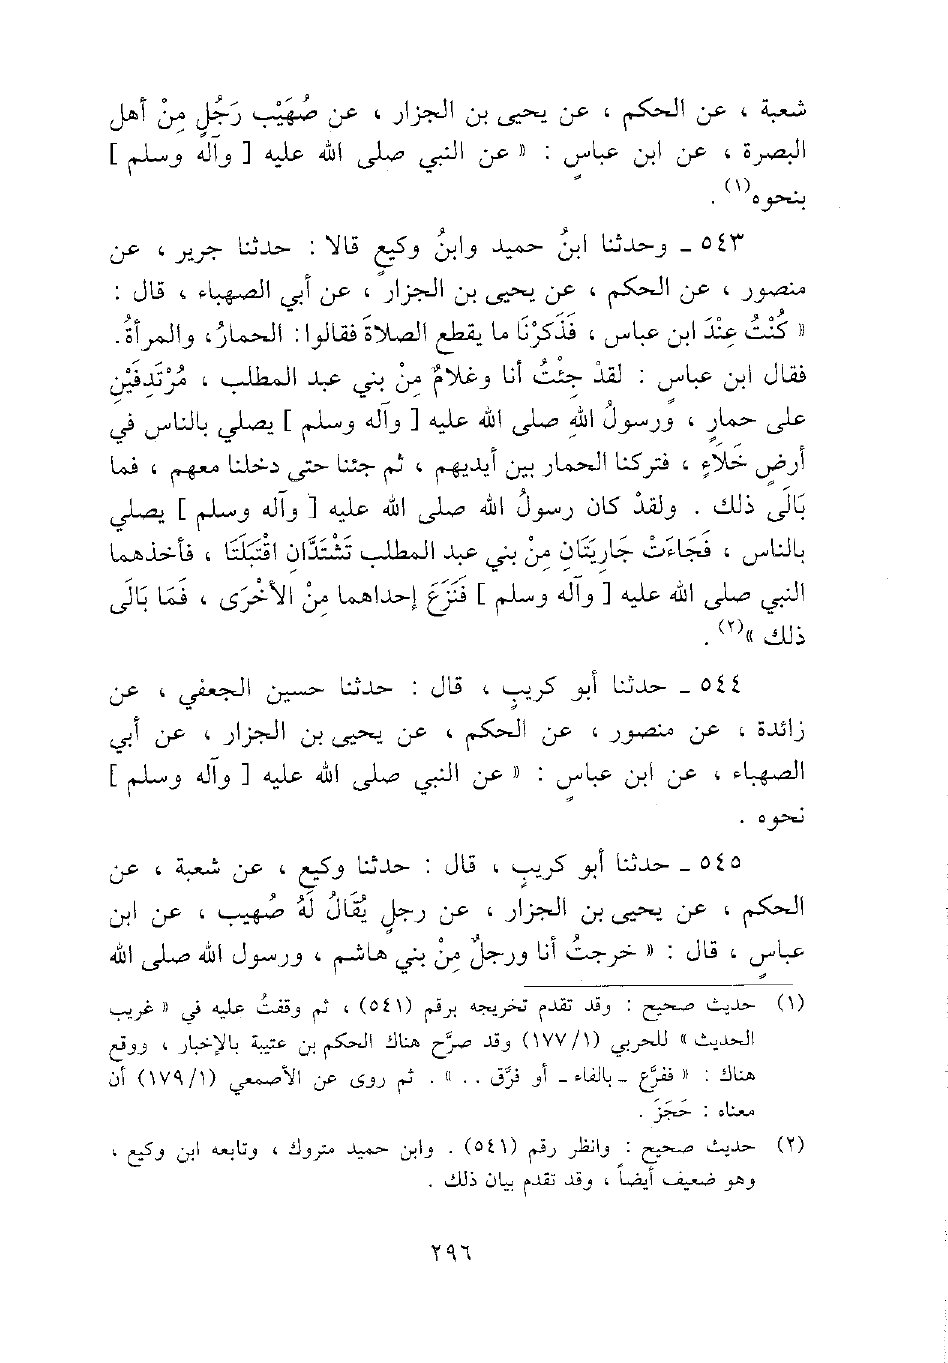 شعبة ، عن الحكم ، عن يحيى بن الجزار ، عن صُهَيْب رَجُلٍ مِنْ أهل
البصرة ، عن ابن عباسٍ : « عن النبي صلى الله عليه [ وآله وسلم ]
بنحوه(١) .
٥٤٣ ـ وحدثنا ابنُ حميد وابنُ وكيعٍ قالا : حدثنا جرير ، عن
منصور ، عن الحكم ، عن يحيى بن الجزار ، عن أبي الصهباء ، قال :
« كُنْتُ عِنْدَ ابن عباس ، فَذَكَرْنَا ما يقطع الصلاةَ فقالوا : الحمارُ ، والمرأةُ .
فقال ابن عباس : لقدْ جِئْتُ أنا وغلامٌ مِنْ بني عبد المطلب ، مُرْتَدِفَيْنِ
على حمارٍ ، ورسولُ اللهِ صلى الله عليه [ وآله وسلم ] يصلي بالناس في
أرضٍ خَلَاءٍ ، فتركنا الحمار بين أيديهم ، ثم جئنا حتى دخلنا معهم ، فما
بَالَى ذلك . ولقدْ كان رسولُ الله صلى الله عليه [ وآله وسلم ] يصلي
بالناس ، فَجَاءَتْ جَارِيَتَانِ مِنْ بني عبد المطلب تَشْتَدَّانِ اقْتَتَلَتَا ، فأخذهما
النبي صلى الله عليه [ وآله وسلم ] فَنَزَعَ إحداهما مِنْ الأخْرَى ، فَمَا بَالَى
ذلك »(٢) .
٥٤٤ ـ حدثنا أبو كريبٍ ، قال : حدثنا حسين الجعفي ، عن
زائدة ، عن منصور ، عن الحكم ، عن يحيى بن الجزار ، عن أبي
الصهباء ، عن ابن عباسٍ : « عن النبي صلى الله عليه [ وآله وسلم ]
نحوه .
٥٤٥ ـ حدثنا أبو كريبٍ ، قال : حدثنا وكيع ، عن شعبة ، عن
الحكم ، عن يحيى بن الجزار ، عن رجلٍ يُقَالُ لَهُ صُهيب ، عن ابن
عباسٍ ، قال : « خرجتُ أنا ورجلٌ مِنْ بني هاشم ، ورسول الله صلى الله
(١) حديث صحيح : وقد تقدم تخريجه برقم (٥٤١) ، ثم وقفتُ عليه في « غريب
الحديث » للحربي (١/١٧٧) وقد صرَّح هناك الحكم بن عتيبة بالإخبار ، ووقع
هناك : « ففرَّع ـ بالفاء ـ أو فرَّق .. » . ثم روى عن الأصمعي (١/١٧٩) أن
معناه : حَجَزَ .
(٢) حديث صحيح : وانظر رقم (٥٤١) . وابن حميد متروك ، وتابعه ابن وكيع ،
وهو ضعيف أيضاً ، وقد تقدم بيان ذلك .
٢٩٦